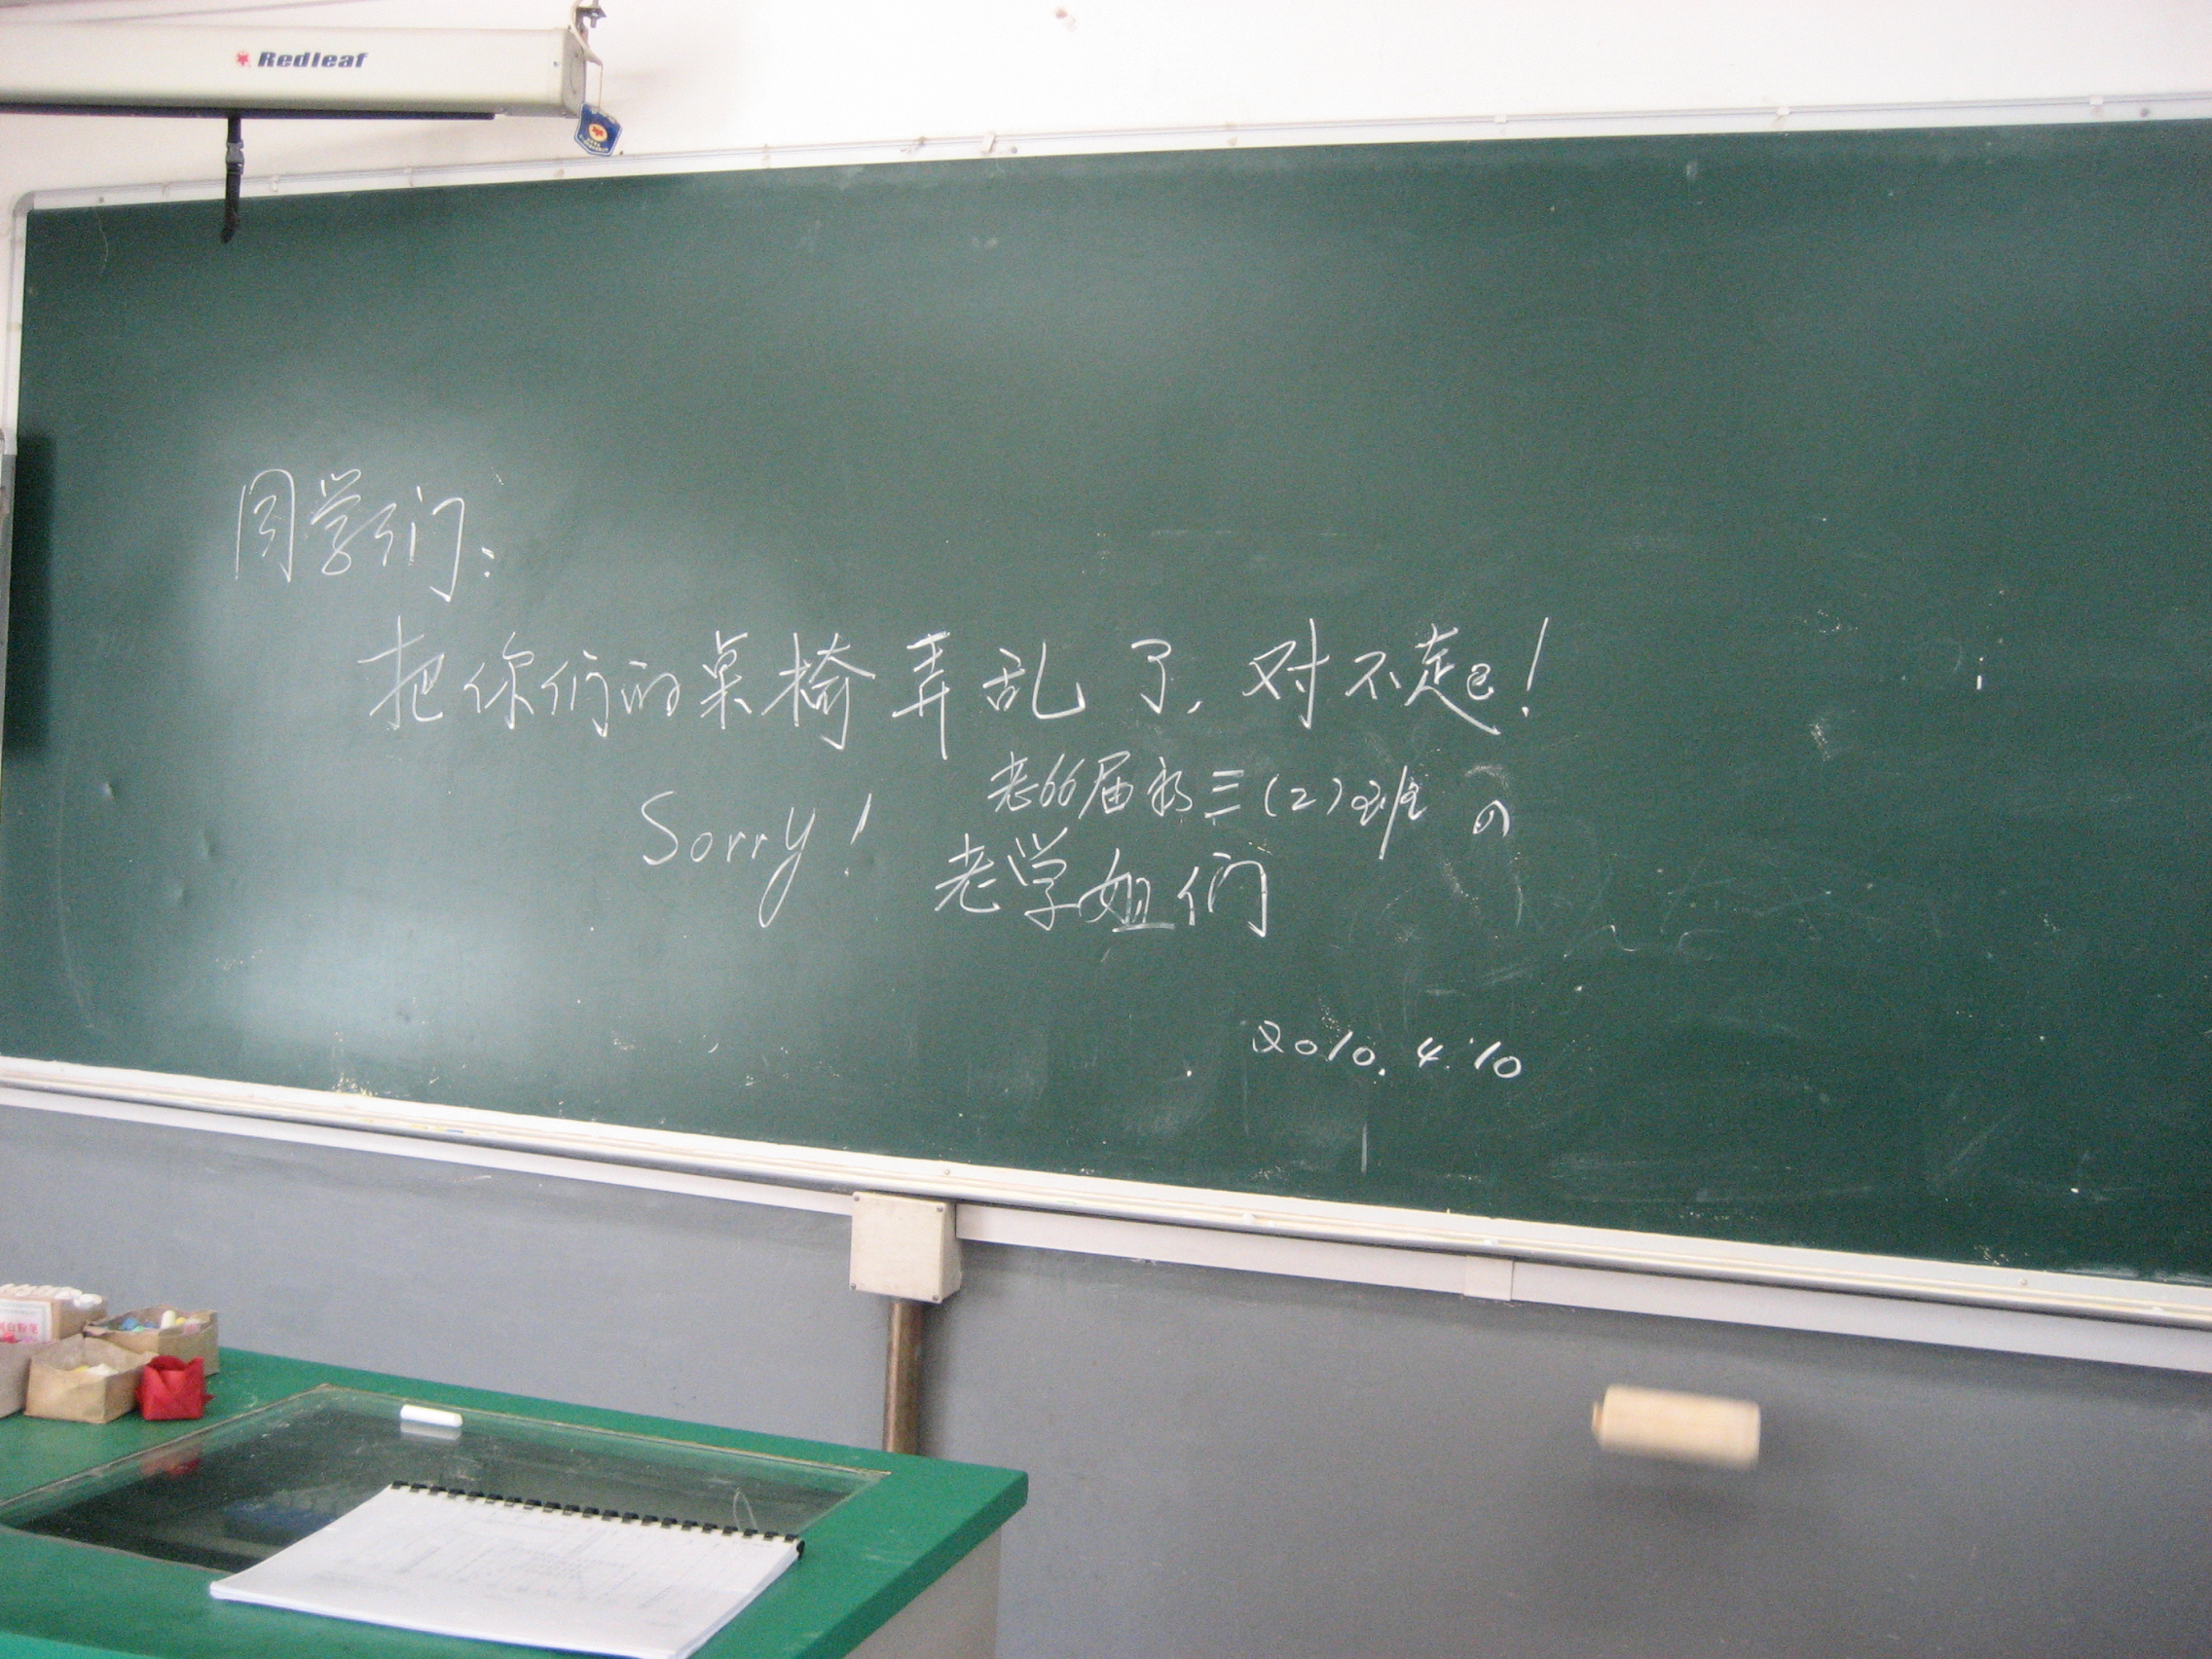 Redleaf
同学们:
把你们的桌椅弄乱了,对不起!
Sorry!
老66届初三(2)班的
老学姐们
2010.4.10